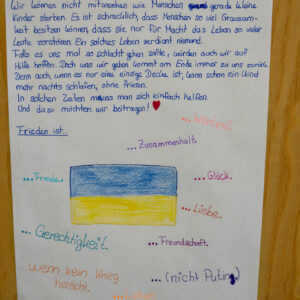 Wir können nicht mitansehen wie Menschen und gerade kleine
Kinder sterben. Es ist schrecklich, dass Menschen so viel Grausam-
keit besitzen können, dass sie nur für Macht das Leben so vieler
Leute zerstören. Ein solches Leben verdient niemand.
Falls es uns mal so schlecht gehen sollte, würden auch wir auf
Hilfe hoffen. Doch was wir geben kommt am Ende immer zu uns zurück.
Denn auch, wenn es nur eine einzige Decke ist, kann schon ein Kind
mehr nachts schlafen, ohne frieren.
In solchen Zeiten muss man sich einfach helfen.
Und dazu möchten wir beitragen!
Frieden ist...
... wertvoll.
... Zusammenhalt.
... Freude.
... Glück.
... Liebe.
... Gerechtigkeit.
... Freundschaft.
... wenn kein Krieg
herscht.
... (nicht Putin)